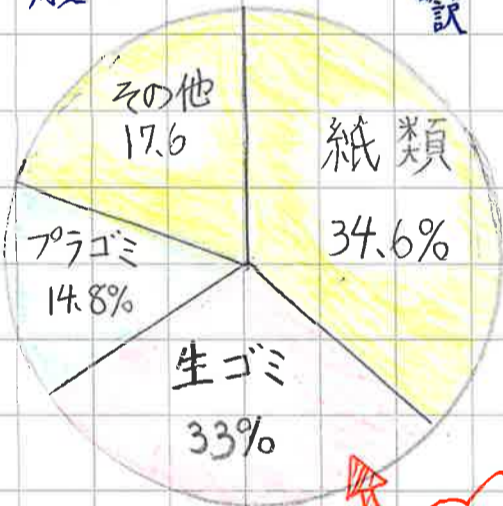 訳
その他
17.6
紙類
34.6%
プラゴミ
14.8%
生ゴミ
33%